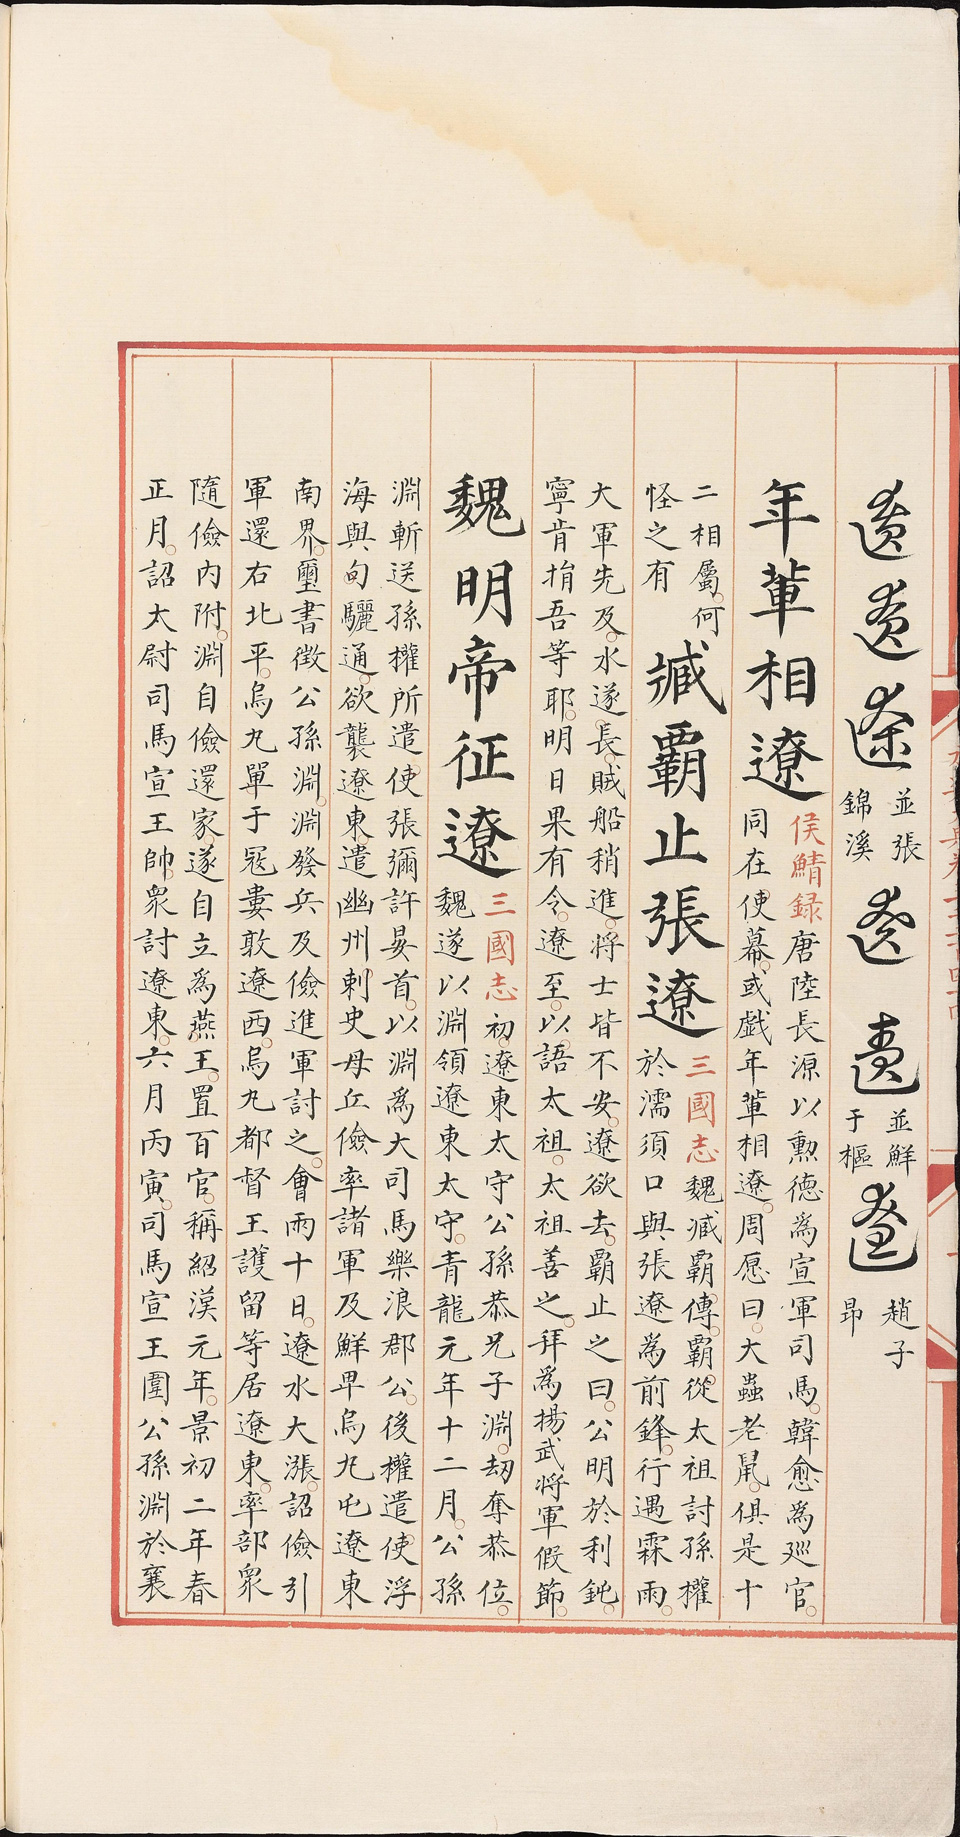 遼遼遼
並張
錦溪
遼遼
並鮮
于樞
遼
趙子
昂
年輩相遼
侯鯖録唐陸長源以勲德為宣軍司馬。韓愈為廵官。
同在使幕。或戯年輩相遼。周愿曰。大蟲老鼠。俱是十
二相屬。何
怪之有
臧覇止張遼
三國志魏臧覇傳。覇從太祖討孫權
於濡須口與張遼為前鋒。行遇霖雨。
大軍先及。水遂長。賊船稍進。將士皆不安。遼欲去。覇止之曰。公明於利鈍。
寧肯捐吾等耶。明日果有令。遼至。以語太祖。太祖善之。拜為揚武將軍假節。
魏明帝征遼
三國志初。遼東太守公孫恭兄子淵。刼奪恭位。
魏遂以淵領遼東太守。青龍元年十二月。公孫
淵斬送孫權所遣使張彌許晏首。以淵為大司馬樂浪郡公。後權遣使浮
海與句驪通。欲襲遼東。遣幽州刺史毋丘儉率諸軍及鮮卑烏丸屯遼東
南界。璽書徴公孫淵。淵發兵及儉進軍討之。會雨十日。遼水大漲。詔儉引
軍還右北平。烏丸單于冦婁敦遼西。烏丸都督王護留等居遼東。率部衆
隨儉內附。淵自儉還家。遂自立爲燕王。置百官。稱紹漢元年。景初二年春
正月。詔太尉司馬宣王帥衆討遼東。六月丙寅。司馬宣王圍公孫淵於襄